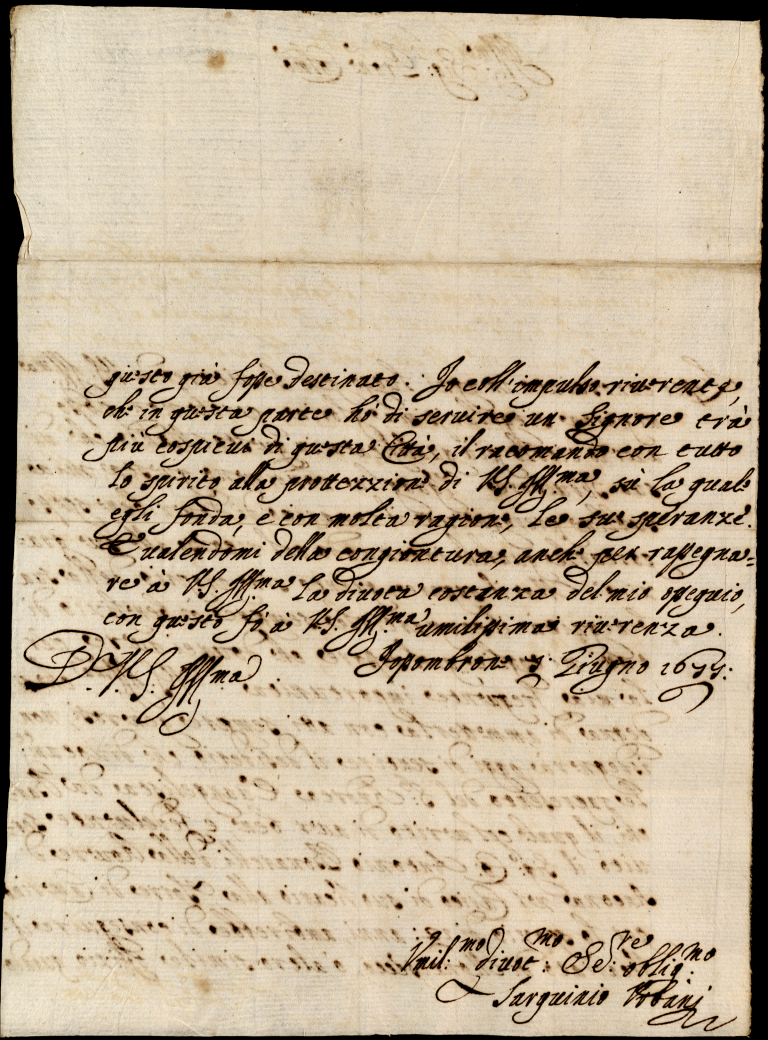 questo già fosse destinato. Io coll'impulso riverente,
che in questa parte hò di servire un Signore trà
più cospicui di questa Città, il racomando con tutto
lo spirito alla prottezzione di V.S. Ill.ma, sù la quale
egli fonda, e con molta ragione, le sue speranze.
E valendomi della congiontura, anche per rassegna=
re à V.S. Ill.ma la divota costanza del mio ossequio,
con questo fò à V.S. Ill.ma umilissima riverenza.
Fossombrone Giugno
D. V.S. Ill.ma
Umil:mo divot:mo Se:re oblig:mo
Tarquinio Urbani